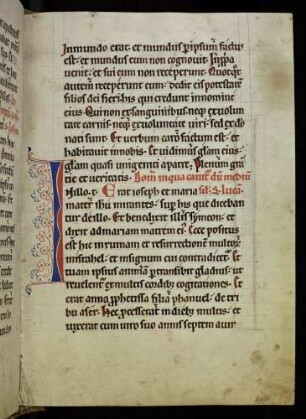 Inmundo erat et mundus p ipsum factus
est et mundus eum non cognouit Inppa
uenit et sui eum non receperunt Quotqt
autem receperunt eum dedit eis potestatem
filios dei fieri his qui credunt in nomine
eius Qui non ex sanguinibus neq ex uolun
tate carnis neq ex uoluntate uiri sed ex do
nati sunt Et uerbum caro factum est et
habitauit in nobis Et uidimus glam eius
glam quasi unigeniti a patre Plenum gra
tie et ueritatis Dom
In illo t Erat ioseph et maria Lucam
mater ihu mirantes sup his que diceban
tur de illo Et benedixit illis symeon et
dixit ad mariam matrem ei Ecce positus
est hic in ruinam et resurrectionem multor
in israhel et in signum cui contradicet Et
tuam ipsius animam ptransibit gladius ut
reuelent ex multis cordib cogitationes Et
erat anna pphetissa filia phanuel de tri
bu aser Hec pcesserat in dieb multis et
uixerat cum uiro suo annis septem a uir